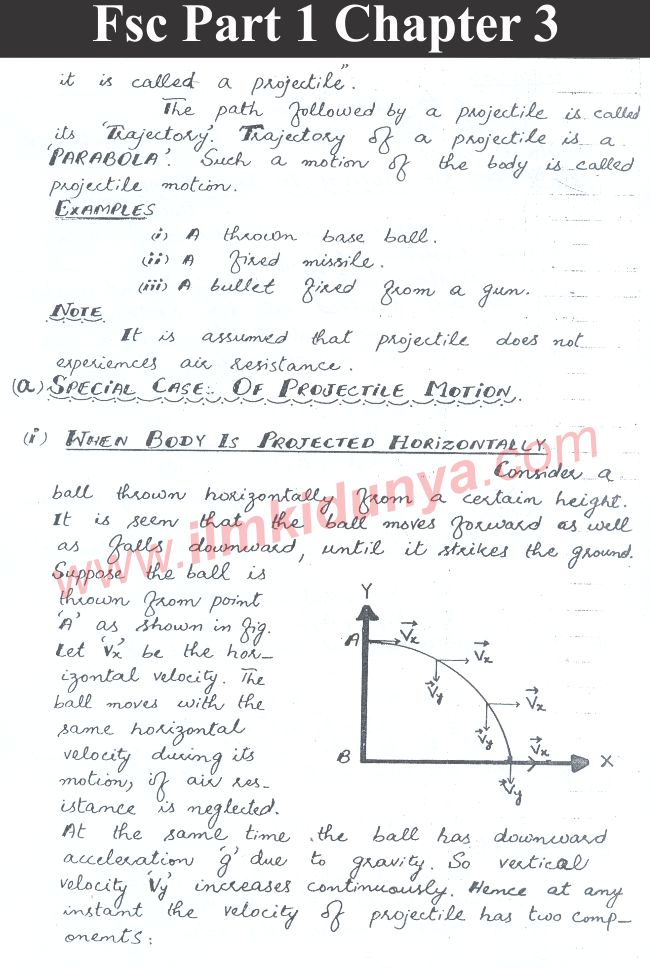 Fsc Part 1 Chapter 3
it is called a projectile".
The path followed by a projectile is called
its 'Trajectory'. Trajectory of a projectile is a
'PARABOLA'. Such a motion of the body is called
projectile motion.
EXAMPLES
(i) A thrown base ball.
(ii) A fired missile.
(iii) A bullet fired from a gun.
NOTE
It is assumed that projectile does not
experiences air resistance.
(a) SPECIAL CASE OF PROJECTILE MOTION.
(i) WHEN BODY IS PROJECTED HORIZONTALLY
Consider a
ball thrown horizontally from a certain height.
It is seen that the ball moves forward as well
as falls downward, until it strikes the ground.
Suppose the ball is
thrown from point
'A' as shown in fig.
Let 'Vx' be the hor-
izontal velocity. The
ball moves with the
same horizontal
velocity during its
motion, if air res-
istance is neglected.
Y
A
V⃗x
V⃗x
V⃗y
V⃗x
V⃗y
V⃗x
B
X
V⃗y
At the same time the ball has downward
acceleration 'g' due to gravity. So vertical
velocity 'Vy' increases continuously. Hence at any
instant the velocity of projectile has two comp-
onents:
www.ilmkidunya.com